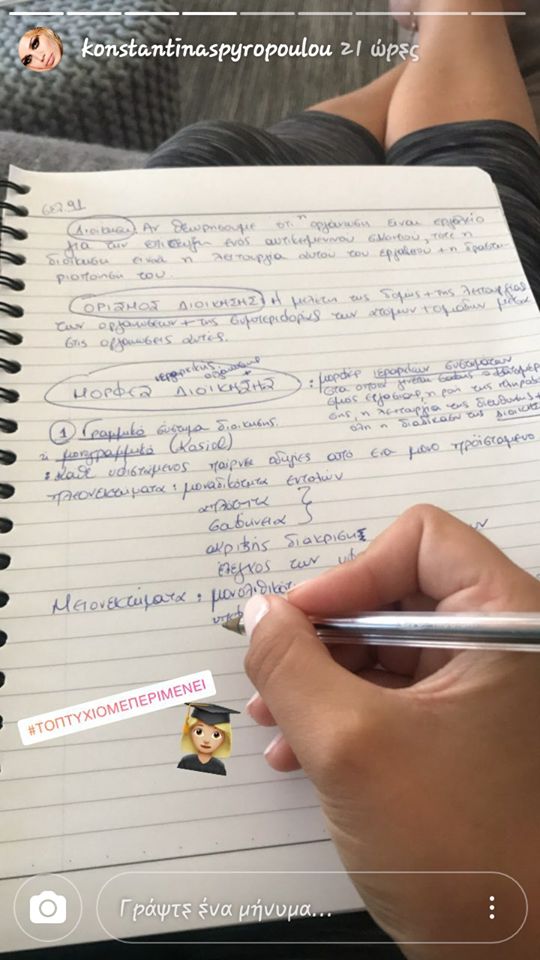 konstantinaspyropoulou 21 ώρες
σελ.91
Διοίκηση Αν θεωρησουμε οτι η οργανωση ειναι εργαλειο
για την επιτευξη ενος αντικειμενικου σκοπου, τοτε η
διοικηση ειναι η λειτουργια αυτου του εργαλειου + η δραστη-
ριοποιηση του.
ΟΡΙΣΜΟΣ ΔΙΟΙΚΗΣΗΣ : η μελετη της δομης + της λειτουργιας
των οργανωσεων + της συμπεριφορας των ατομων + ομαδων μεσα
στις οργανωσεις αυτες.
ΜΟΡΦΕΣ ΔΙΟΙΚΗΣΗΣ : μορφες ιεραρχικων συστηματων
στα οποια γινεται
η ροη της πληροφο
σης, η λειτουργια της
ολη η διαδικασια της διοικησης
1 Γραμμικο συστημα διοικησης
ή μονογραμμικο
: καθε υφισταμενος παιρνει οδηγιες απο ενα μονο προϊσταμενο
πλεονεκτηματα : μοναδικοτητα εντολων
απλοτητα
σαφηνεια
ακριβης διακριση
ελεγχος των
Μειονεκτηματα :
#ΤΟΠΤΥΧΙΟΜΕΠΕΡΙΜΕΝΕΙ
Γράψτε ένα μήνυμα...